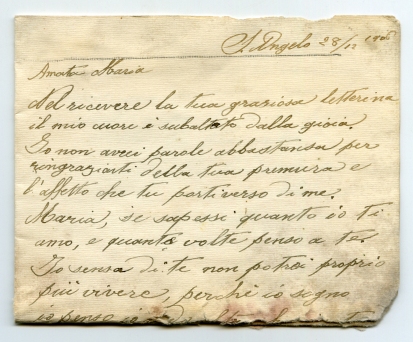 S. Angelo 28/12 1906
Amata Maria
Nel ricevere la tua graziosa letterina
il mio cuore è subaltato dalla gioia.
Io non aveii parole abbastansa per
ringraziarti della tua premura e
l'affetto che tu porti verso di me.
Maria, se sapessi quanto io ti
amo, e quante volte penso a te.
Io sensa di te non potrei proprio
più vivere, perchè io sogno
io penso